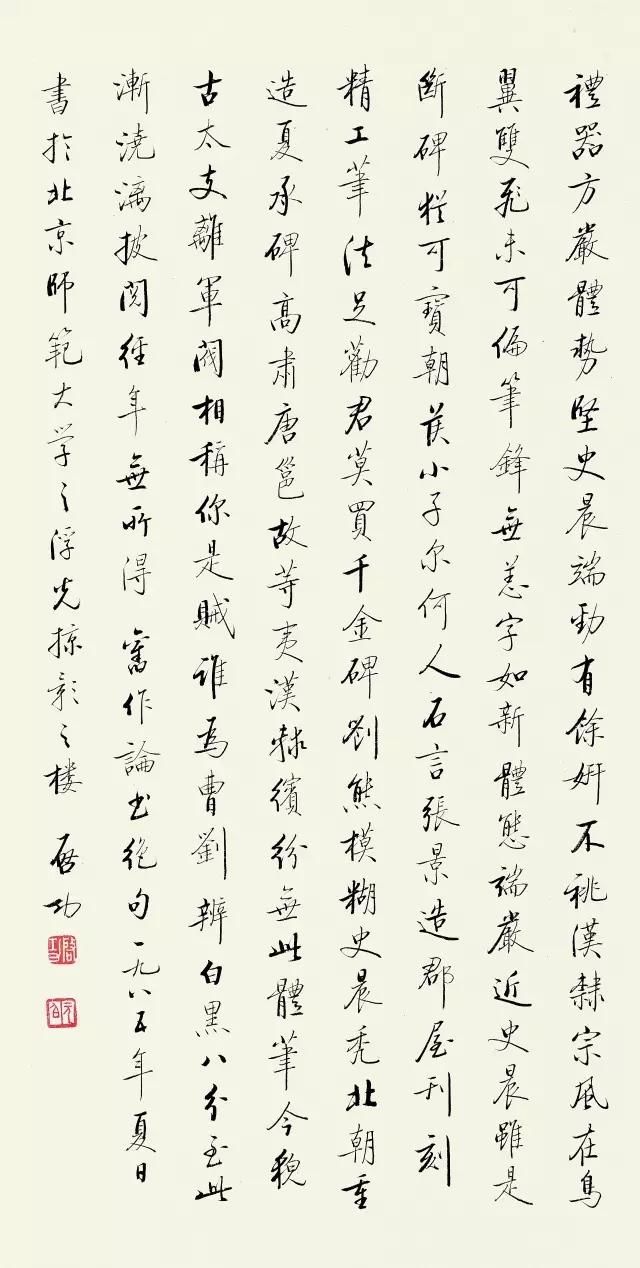 禮器方嚴體勢堅史晨端勁有餘妍不祧漢隸宗風在鳥
翼雙飛未可偏筆鋒無恙字如新體態端嚴近史晨雖是
斷碑猶可寶朝侯小子尔何人石言張景造郡屋刊刻
精工筆法足勸君莫買千金碑劉熊模糊史晨禿北朝重
造夏承碑高肅唐邕故等夷漢隸繽紛無此體筆今貌
古太支離軍閥相稱你是賊誰為曹劉辨白黑八分至此
漸澆漓披閱經年無所得 舊作論书絕句一九八五年夏日
書於北京師範大学之浮光掠影之楼 启功
启功
元白